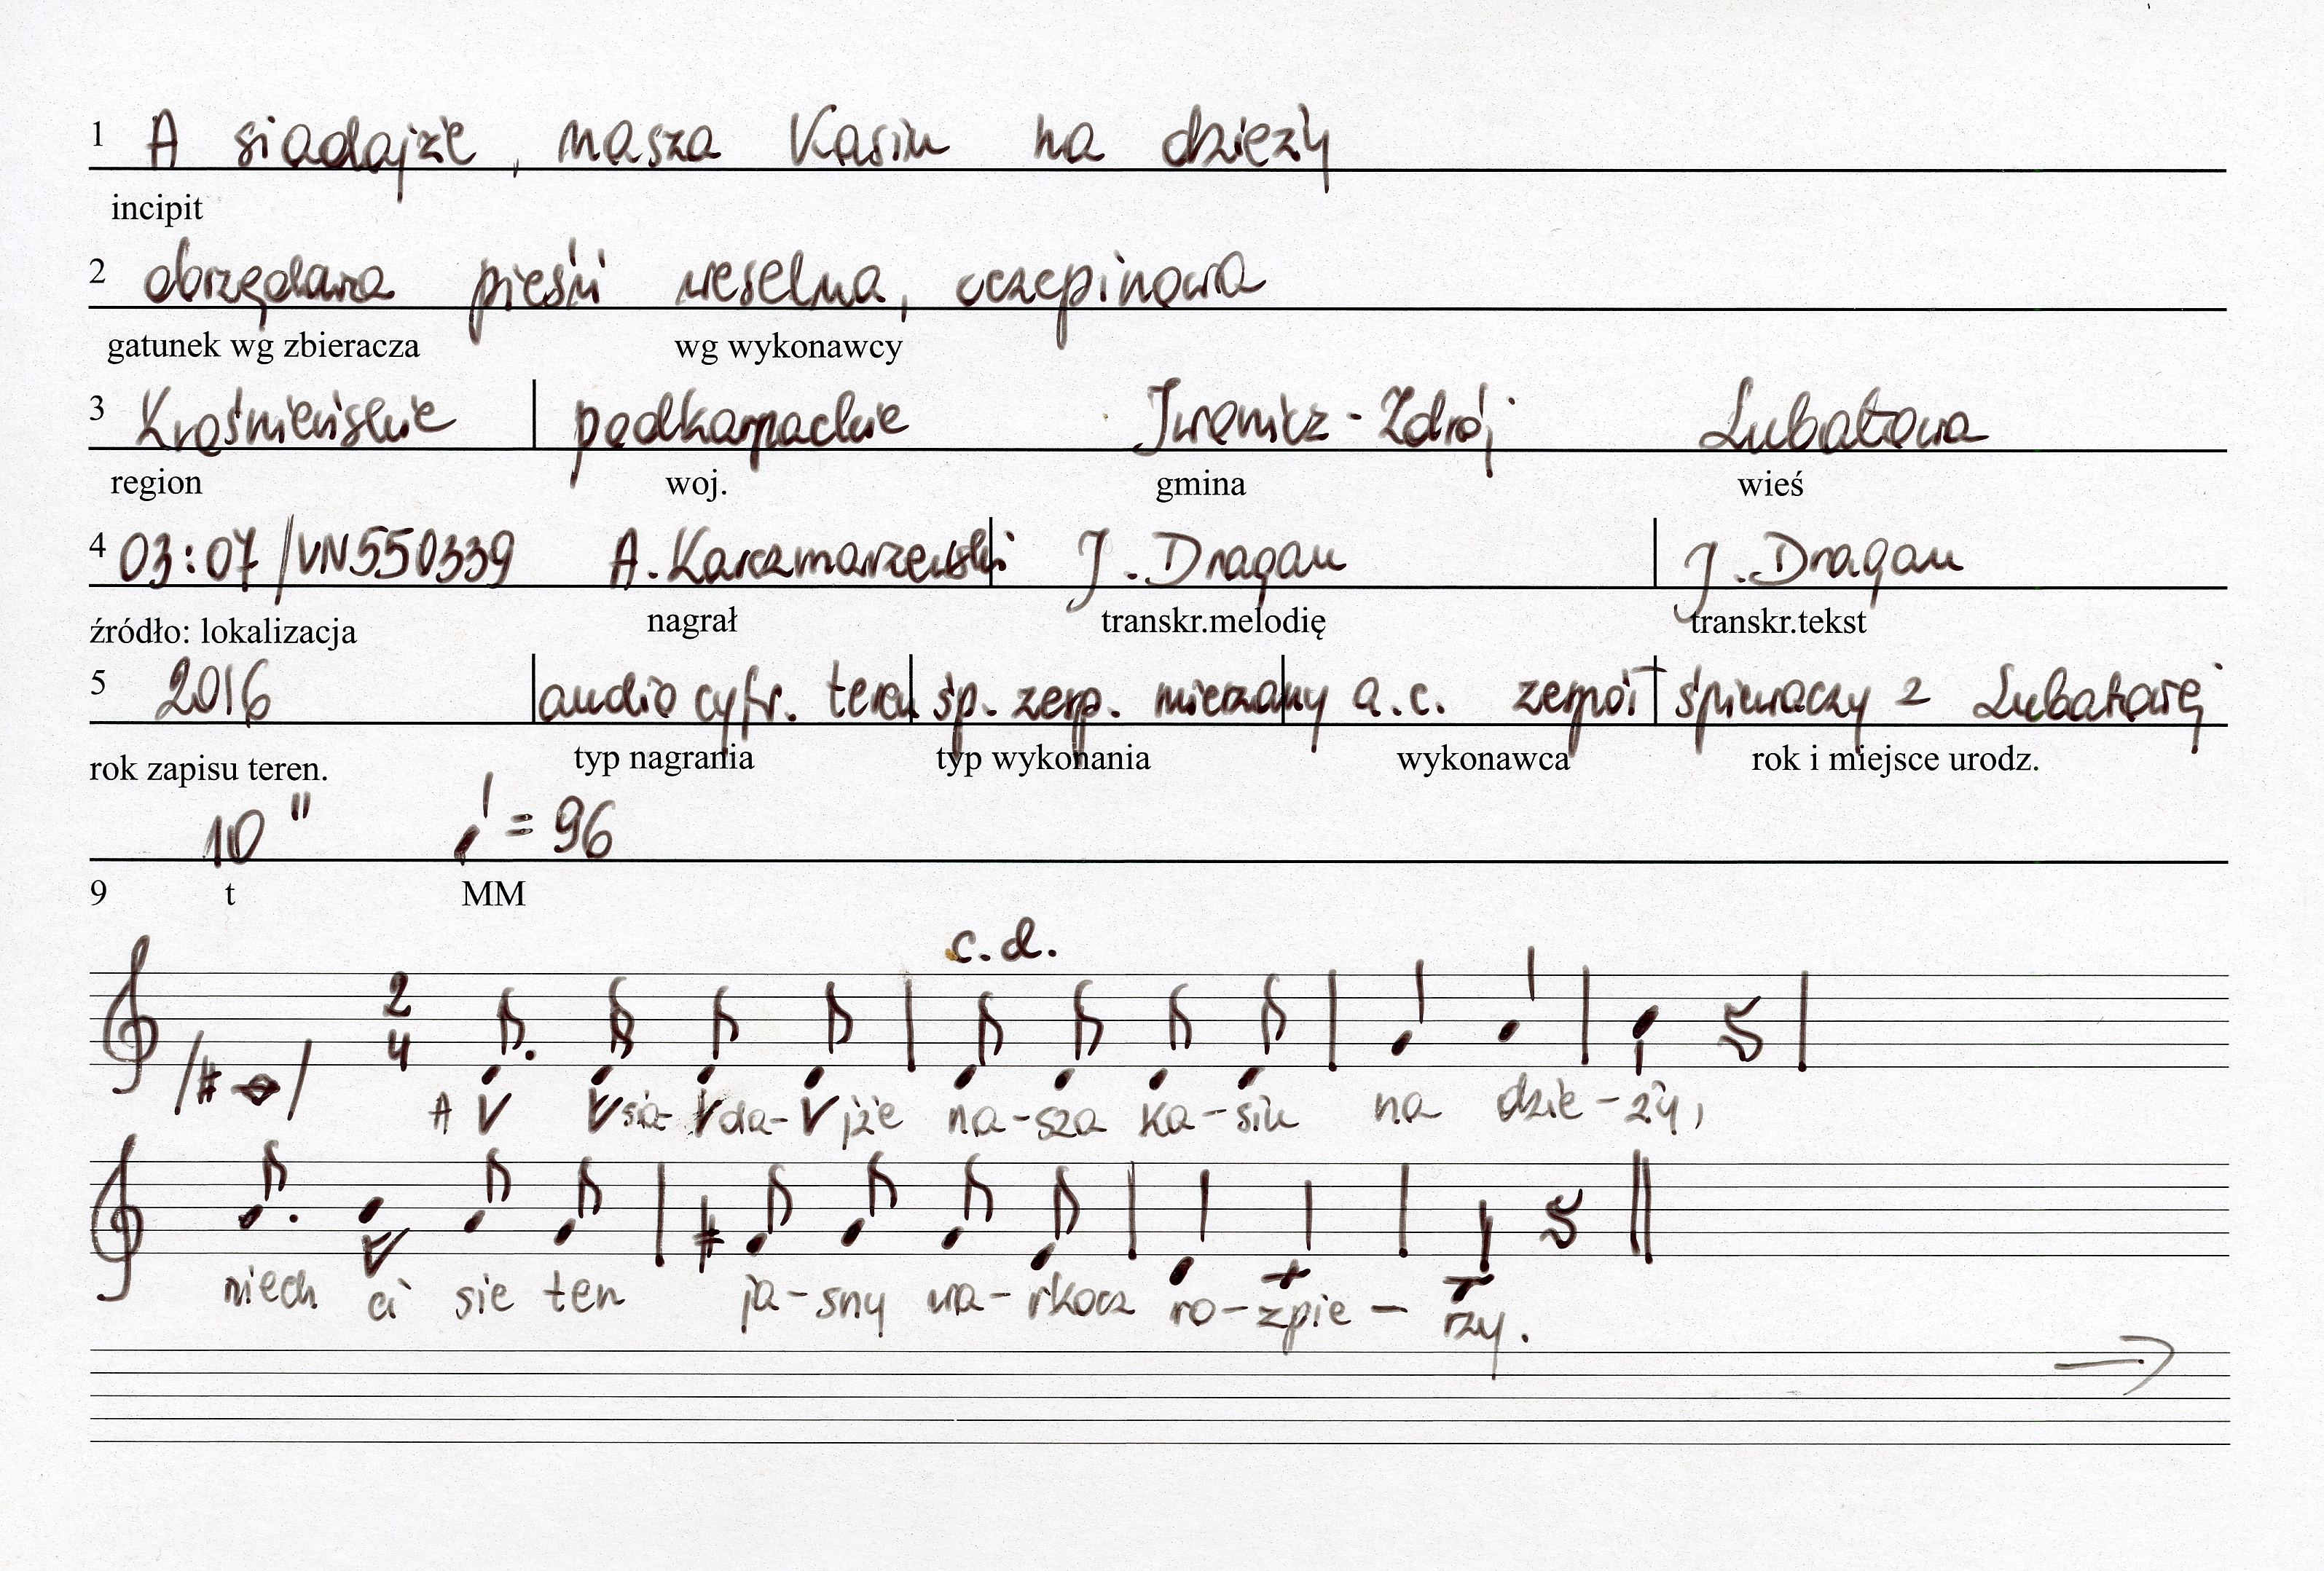 1 A siadajże, nasza Kasiu na dzieży
incipit
2 obrzędowa pieśń weselna, oczepinowa
gatunek wg zbieracza wg wykonawcy
3 Krośnieńskie podkarpackie Iwonicz-Zdrój Lubatowa
region woj. gmina wieś
4 03:07/VN550339 A. Karczmarzewski J. Dragan J. Dragan
źródło: lokalizacja nagrał transkr.melodię transkr.tekst
5 2016 audio cyfr. teren śp. zesp. mieszany a.c. zespół śpiewaczy z Lubatowej
rok zapisu teren. typ nagrania typ wykonania wykonawca rok i miejsce urodz.
10" = 96
9 t MM
c.d.
2
4
A sia- da- jże na-sza Ka-siu na dzie-ży,
niech ci sie ten ja-sny wa-rkocz ro-zpie-rzy.